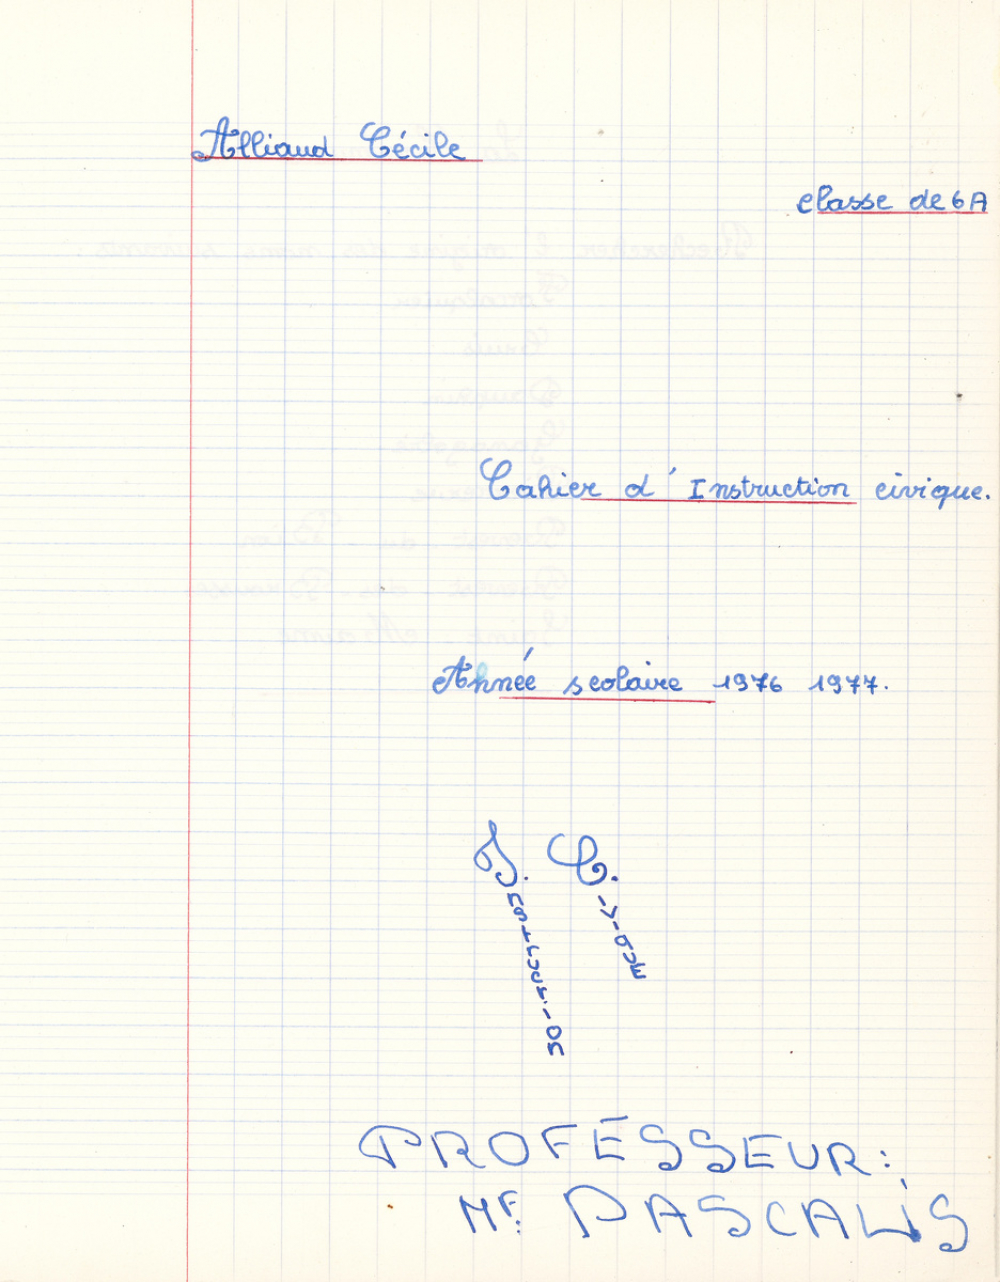 Alliaud Cécile
classe de 6A
Cahier d'Instruction civique.
Année scolaire 1976 1977.
I. C.
PROFESSEUR:
Mr. PASCALIS